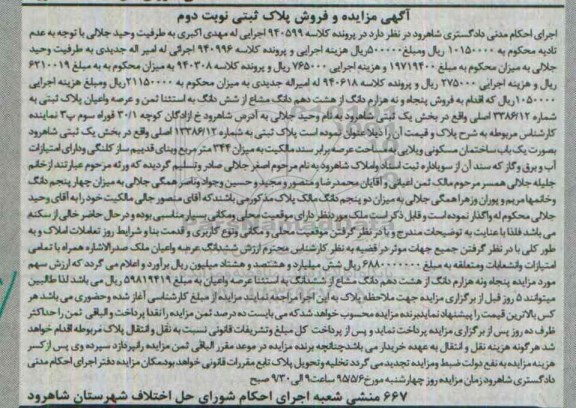 آگهی مزایده و فروش پلاک ثبتی نوبت دوم
اجرای احکام مدنی دادگستری شاهرود در نظر دارد در پرونده کلاسه ۹۴۰۵۹۹ اجرایی له مهدی اکبری به طرفیت وحید جلالی با توجه به عدم
تادیه محکوم به ۱۰۱۵۰۰۰۰ ریال ومبلغ ۵۰۰۰۰۰ریال هزینه اجرایی و پرونده کلاسه ۹۴۰۹۹۶ اجرائی له امیر اله جدیدی به طرفیت وحید
جلالی به میزان محکوم به مبلغ ۱۹۷۱۹۴۰۰ و هزینه اجرایی ۷۶۵۰۰۰ ریال و پرونده کلاسه ۹۴۰۳۰۸ به میزان محکوم به به مبلغ ۶۲۱۰۰۱۹
ریال و هزینه اجرایی ۲۷۵۰۰۰ ریال و پرونده کلاسه ۹۴۰۶۱۸ له امیراله جدیدی به میزان محکوم به ۲۱۱۵۰۰۰۰ریال ومبلغ هزینه اجرایی
۱۰۵۰۰۰۰ریال که اقدام به فروش پنجاه و نه هزارم دانگ از هشت دهم دانگ مشاع از شش دانگ به استثنا ثمن و عرصه واعیان پلاک ثبتی به
شماره ۳۳۸۶/۱۲ اصلی واقع در بخش یک ثبتی شاهرود به نام وحید جلالی به آدرس شاهرود خ ازادگان کوچه ۳۰/۱ فوراه سوم پ۳ نماینده
کارشناس مربوطه به شرح پلاک و قیمت آن را ذیلا عنوان نموده است پلاک ثبتی به شماره ۱۳۳۸۶/۱۲ اصلی واقع در بخش یک ثبتی شاهرود
بصورت یک باب ساختمان مسکونی ویلایی به مساحت عرصه برابر سند مالکیت به میزان ۳۴۴ متر مربع وبنای قدیم ساز کلنگی ودارای امتیازات
آب و برق وگاز که سند آن از سوی اداره ثبت اسناد واملاک شاهرود به نام مرحوم اصغر جلالی صادر وتسلیم گردیده که ورثه مرحوم عبارتند از خانم
جلیله جلالی همسر مرحوم مالک ثمن اعیانی و آقایان محمدرضا و منصور و مجید و حسین وجواد وناصر همگی جلالی به میزان چهار پنجم دانگ
وخانمها مریم و پوران وزهرا همگی جلالی به میزان دو پنجم دانگ مالک پلاک مذکور می باشند که آقای منصور جالی مالکیت خود را به آقای وحید
جلالی محکوم له واگذار نموده است و قابل ذکر است ملک مورد نظر دارای موقعیت محلی ومکانی بسیار مناسبی بوده و در حال حاضر خالی از سکنه
می باشد فلذا با عنایت به توضیحات مندرج و با در نظر گرفتن موقعیت محلی و مکانی ونوع کاربری و قدمت بنا و شرایط روز تعاملات املاک و به
طور کلی با در نظر گرفتن جمیع جهات موثر در قضیه به نظر کارشناس محترم ارزش ششدانگ عرصه واعیان ملک صدرالاشاره همراه با تمامی
امتیازات وانشعابات ومتعلقه به مبلغ ۶۸۸۰۰۰۰۰۰۰ ریال شش میلیارد و هشتصد و هشتاد میلیون ریال برآورد و اعلام می گردد که ارزش سهم
مورد مزایده پنجاه ونه هزارم دانگ از هشت دهم دانگ مشاع از ششدانگ به استثنا عرصه واعیان به مبلغ ۵۹۸۱۹۴۱۹ ریال می باشد لذا طالبین
میتوانند ۵ روز قبل از برگزاری مزایده جهت ملاحظه پلاک به این اجرا مراجعه نمایند مزایده از مبلغ کارشناسی آغاز شده وحضوری می باشد هر
کس بالاترین قیمت را پیشنهاد نماید برنده مزایده محسوب خواهد شد که می بایست ده درصد ثمن مزایده را نقدا پرداخت والباقی ثمن را حداکثر
ظرف ده روز پس از برگزاری مزایده پرداخت نماید و پس از پرداخت کل مبلغ وتشریفات قانونی نسبت به نقل و انتقال پلاک مربوطه اقدام خواهد
شد هر گونه هزینه نقل و انتقال به عهده خریدار می باشد چنانچه برنده مزایده در موعد مقرر الباقی ثمن مزایده را نپردازد سپرده وی پس از کسر
هزینه مزایده به نفع دولت ضبط ومزایده تجدید می گردد تخلیه وتحویل پلاک تابع مقررات قانونی خواهد بود مکان مزایده دفتر اجرای احکام مدنی
دادگستری شاهرود زمان مزایده روز چهارشنبه مورخ ۹۵/۵/۶ ساعت ۹ الی ۹/۳۰ صبح
۶۶۷ منشی شعبه اجرای احکام شورای حل اختلاف شهرستان شاهرود